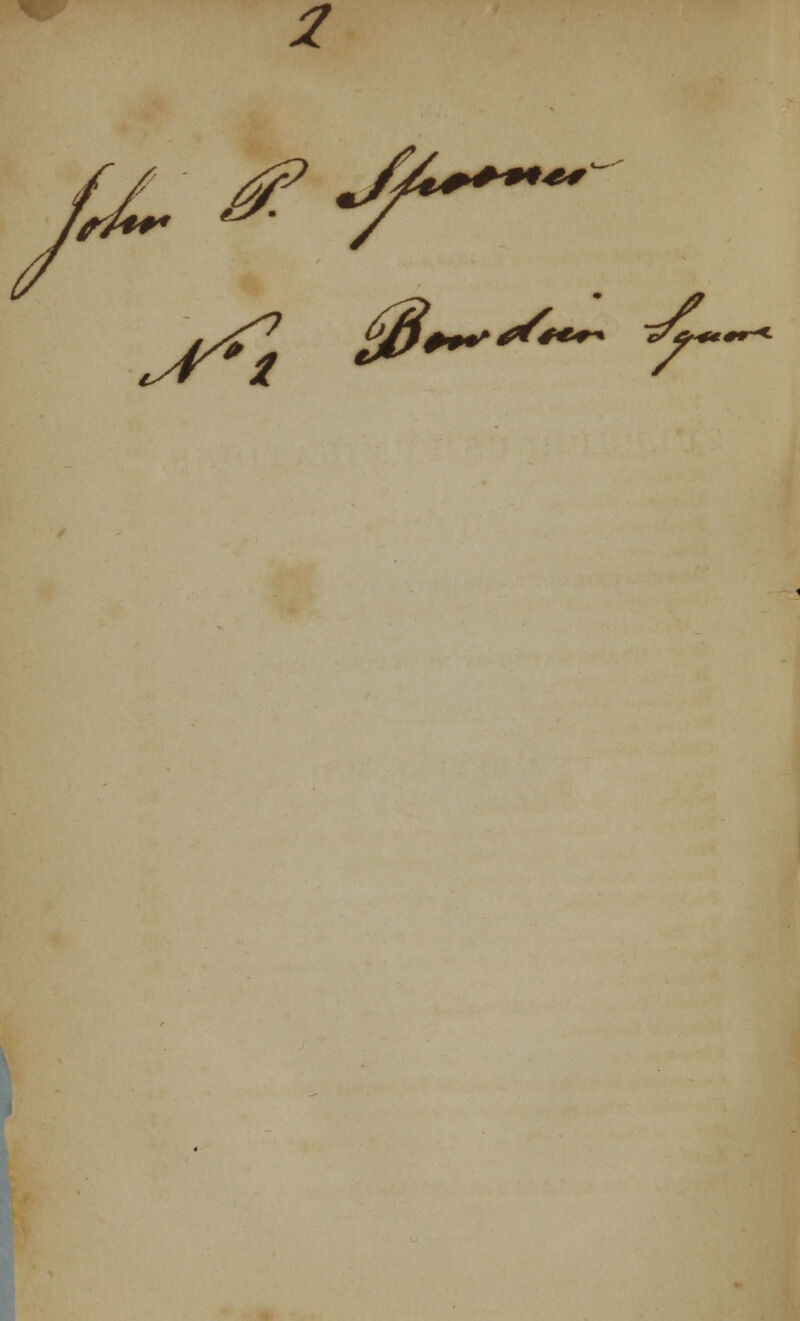 2
John P. Spooner
No 2 Bowdoin Square